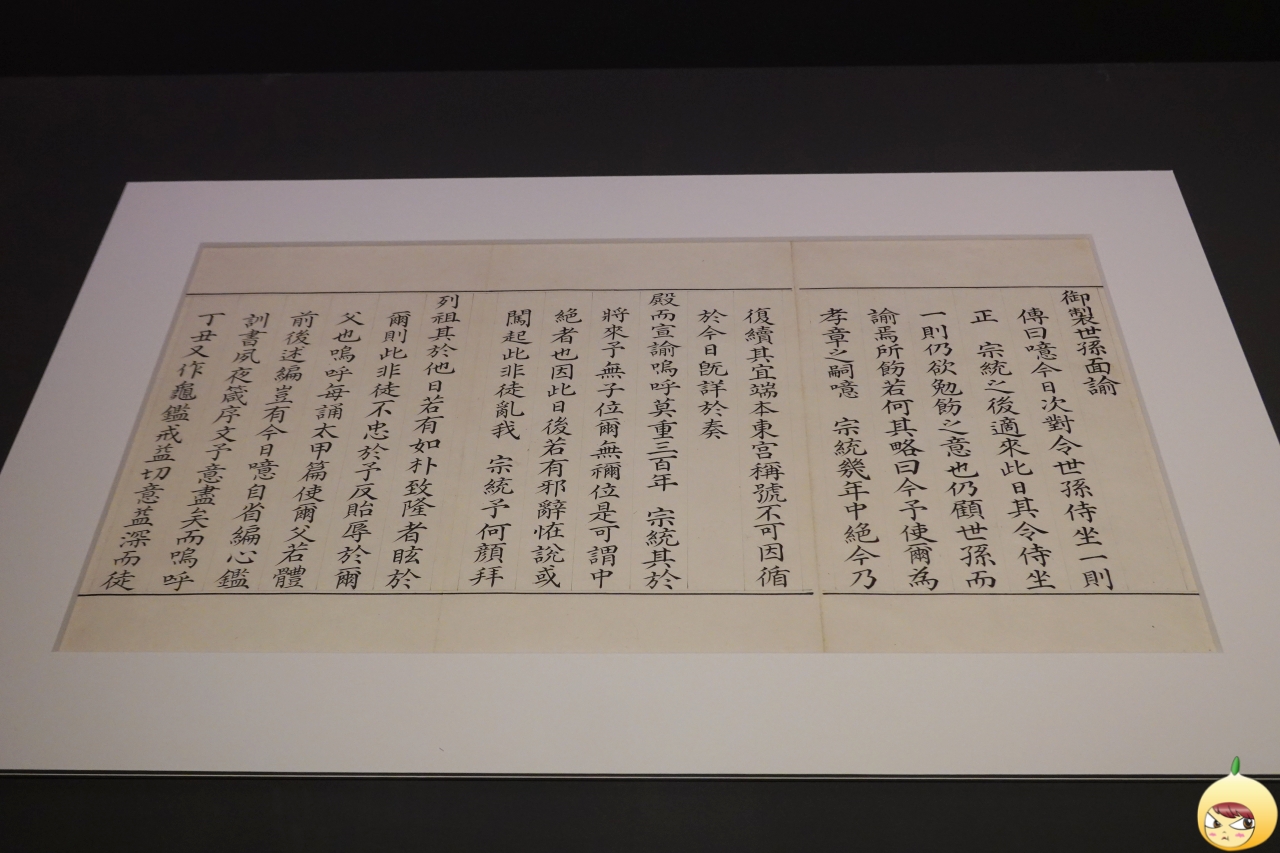 御製世孫面諭
傳曰噫今日次對令世孫侍坐一則
正 宗統之後適來此日其令侍坐
一則仍欲勉飭之意也仍顧世孫而
諭焉所飭若何其略曰今予使爾為
孝章之嗣噫 宗統幾年中絶今乃
復續其宜端本東宮稱號不可因循
於今日旣詳於奏
殿而宣諭嗚呼莫重三百年 宗統其於
將來予無子位爾無禰位是可謂中
絶者也因此日後若有邪辭恠說或
闖起此非徒亂我 宗統予何顔拜
列祖其於他日若有如朴致隆者眩於
爾則此非徒不忠於予反貽辱於爾
父也嗚呼每誦太甲篇使爾父若體
前後述編豈有今日噫自省編心鑑
訓書夙夜箴序文予意盡矣而嗚呼
丁丑又作龜鑑戒益切意益深而徒